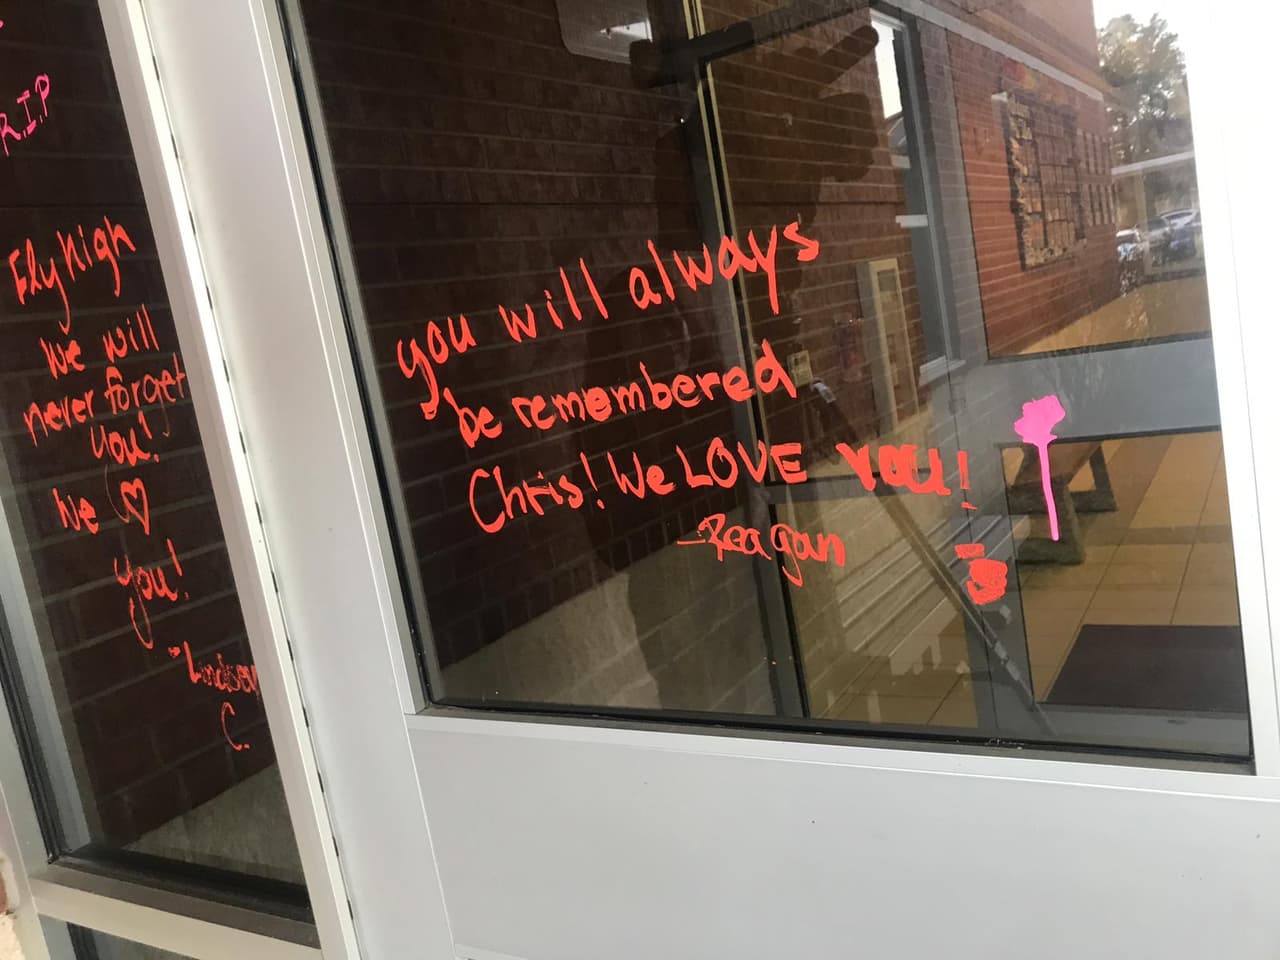 R.I.P
Fly high
We will
never forget
you!
We ♡
you!
-Lindsey
C.
you will always
be remembered
Chris! We LOVE YOU!
-Reagan